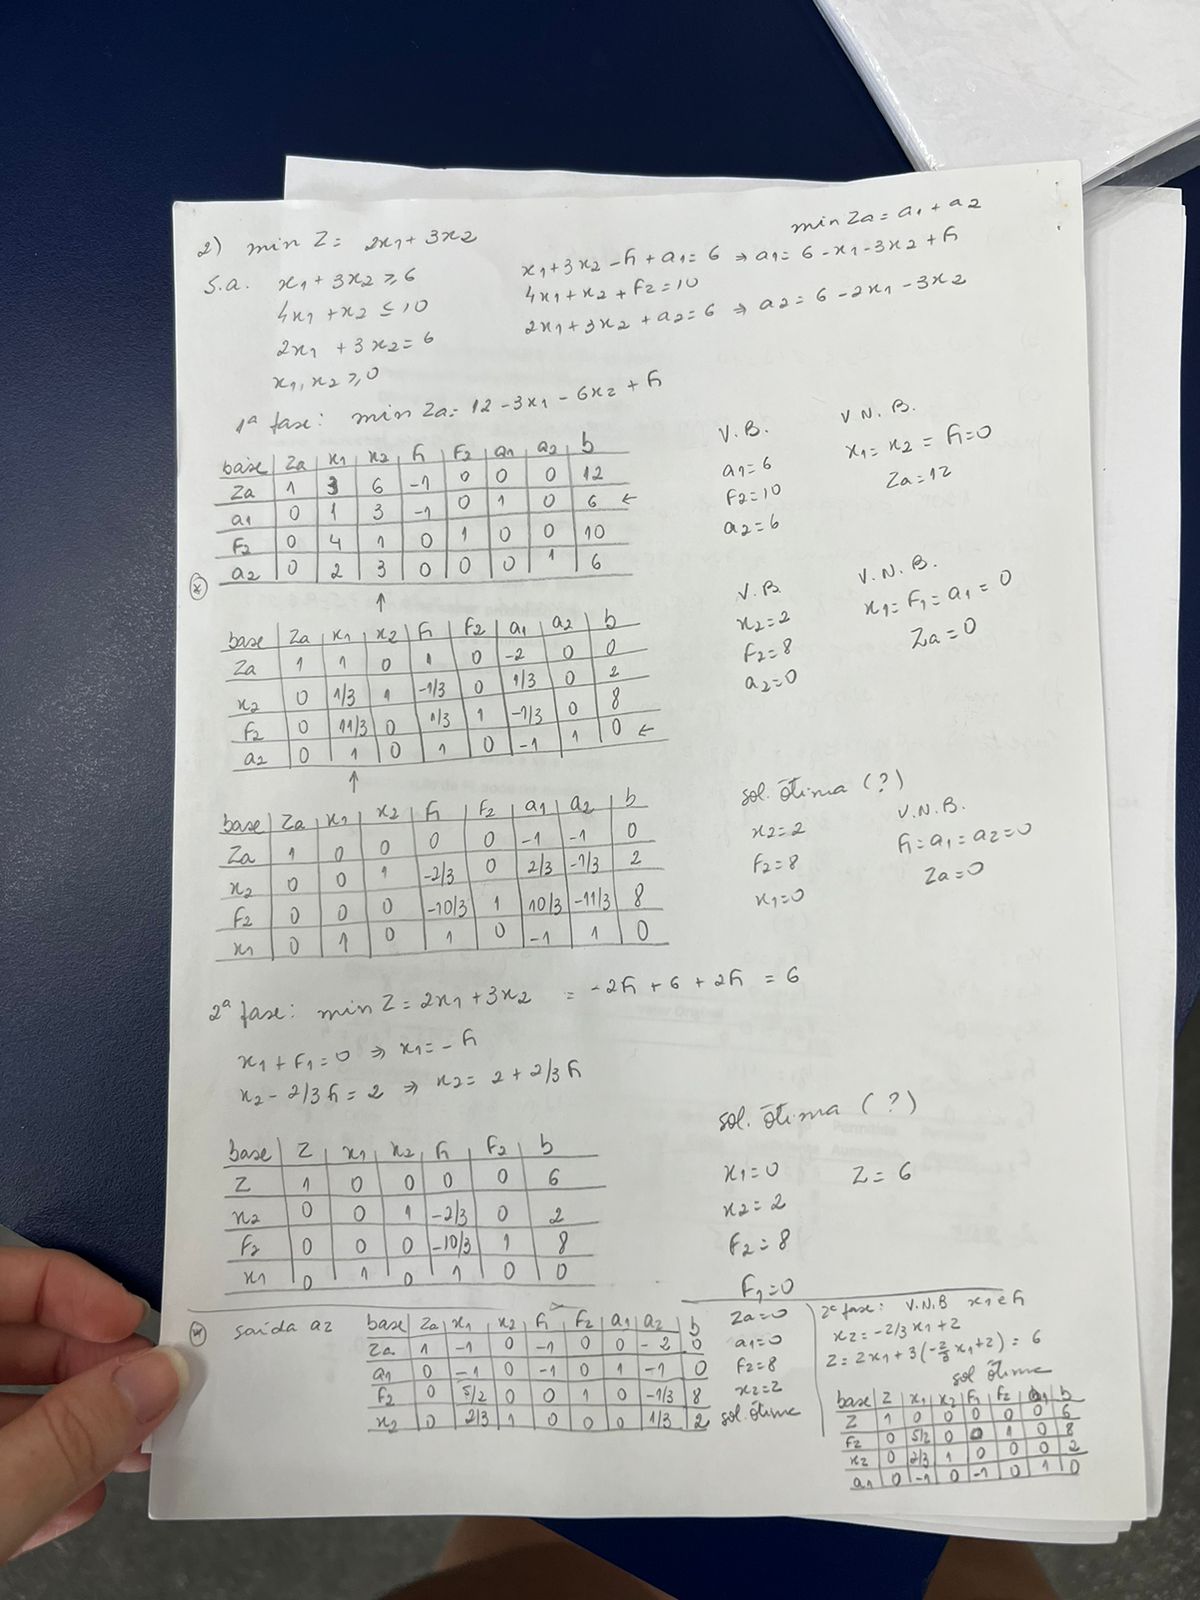 2) min Z = 2x1 + 3x2
min Za = a1 + a2
S.a. x1 + 3x2 ≥ 6
x1 + 3x2 - F1 + a1 = 6 ⇒ a1 = 6 - x1 - 3x2 + F1
4x1 + x2 ≤ 10
4x1 + x2 + F2 = 10
2x1 + 3x2 = 6
2x1 + 3x2 + a2 = 6 ⇒ a2 = 6 - 2x1 - 3x2
x1, x2 ≥ 0
1ª fase: min Za = 12 - 3x1 - 6x2 + F1
base Za x1 x2 F1 F2 a1 a2 b
Za 1 3 6 -1 0 0 0 12
a1 0 1 3 -1 0 1 0 6 ←
F2 0 4 1 0 1 0 0 10
a2 0 2 3 0 0 0 1 6
↑
V.B.
a1 = 6
F2 = 10
a2 = 6
V.N.B.
x1 = x2 = F1 = 0
Za = 12
base Za x1 x2 F1 F2 a1 a2 b
Za 1 1 0 1 0 -2 0 0
x2 0 1/3 1 -1/3 0 1/3 0 2
F2 0 11/3 0 1/3 1 -1/3 0 8
a2 0 1 0 1 0 -1 1 0 ←
↑
V.B
x2 = 2
F2 = 8
a2 = 0
V.N.B.
x1 = F1 = a1 = 0
Za = 0
base Za x1 x2 F1 F2 a1 a2 b
Za 1 0 0 0 0 -1 -1 0
x2 0 0 1 -2/3 0 2/3 -1/3 2
F2 0 0 0 -10/3 1 10/3 -11/3 8
x1 0 1 0 1 0 -1 1 0
sol. ótima (?)
x2 = 2
F2 = 8
x1 = 0
V.N.B.
F1 = a1 = a2 = 0
Za = 0
2ª fase: min Z = 2x1 + 3x2 = -2F1 + 6 + 2F1 = 6
x1 + F1 = 0 ⇒ x1 = -F1
x2 - 2/3 F1 = 2 ⇒ x2 = 2 + 2/3 F1
base Z x1 x2 F1 F2 b
Z 1 0 0 0 0 6
x2 0 0 1 -2/3 0 2
F2 0 0 0 -10/3 1 8
x1 0 1 0 1 0 0
sol. ótima (?)
x1 = 0 Z = 6
x2 = 2
F2 = 8
F1 = 0
* saída a2
base Za x1 x2 F1 F2 a1 a2 b
Za 1 -1 0 -1 0 0 -2 0
a1 0 -1 0 -1 0 1 -1 0
F2 0 5/2 0 0 1 0 -1/3 8
x2 0 2/3 1 0 0 0 1/3 2
Za = 0
a1 = 0
F2 = 8
x2 = 2
sol. ótima
2ª fase: V.N.B x1 e F1
x2 = -2/3 x1 + 2
Z = 2x1 + 3(-2/3 x1 + 2) = 6
sol ótima
base Z x1 x2 F1 F2 a1 b
Z 1 0 0 0 0 0 6
F2 0 5/2 0 0 1 0 8
x2 0 2/3 1 0 0 0 2
a1 0 -1 0 -1 0 1 0